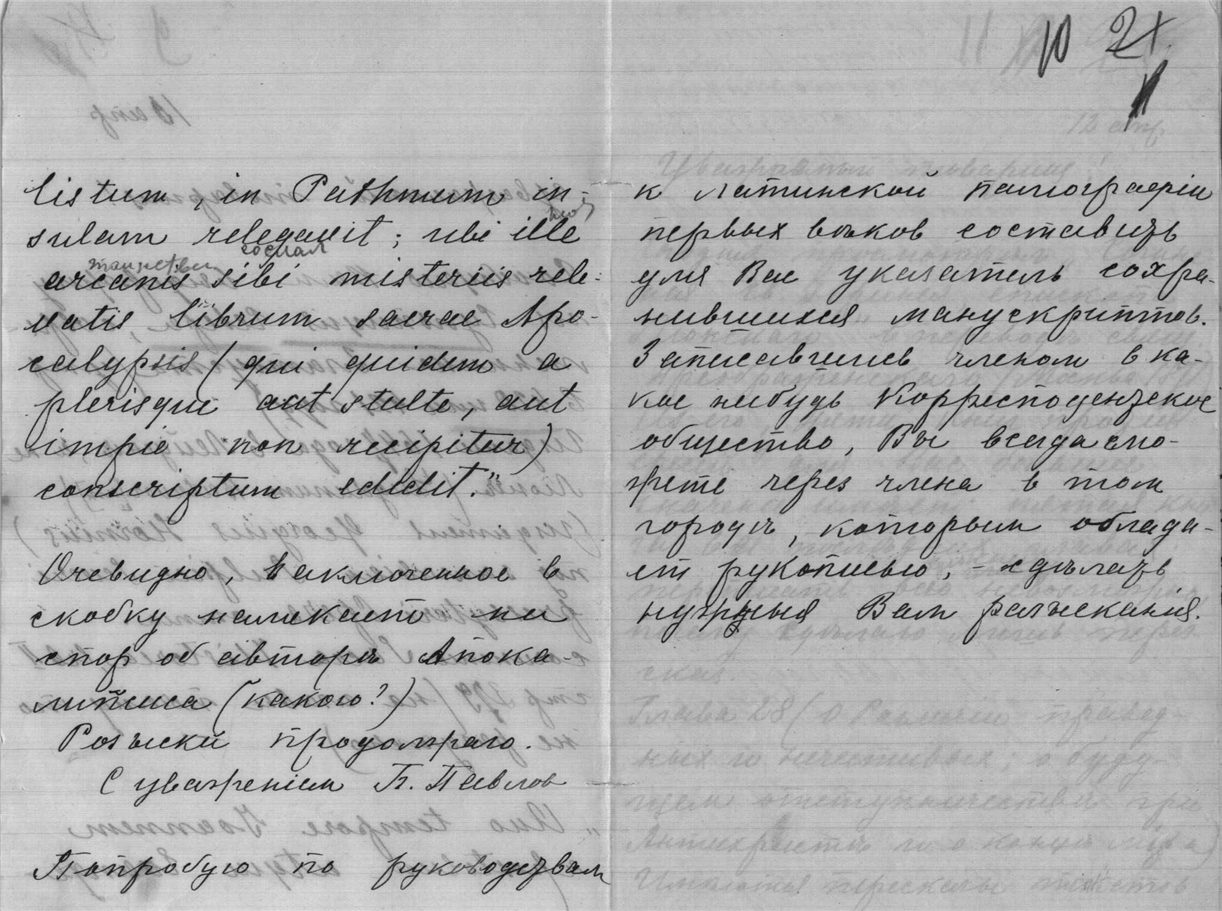 10 21
listum, in Pathmum in-
sulam relegavit; ubi ille
сослал
arcanis sibi misteriis reve-
latis, librum sacrae Apo-
calypsis (qui quidem a
plerisque aut stulte, aut
impie non recipitur)
conscriptum edidit."
Очевидно, заключенное в
скобку намекает на
спор об авторѣ Апока-
липсиса (какого?)
Розыски продолжаю.
С уваженіем П. Павлов
Попробую по руководствам
к латинской палеографіи
первых вѣков составить
для Вас указатель сохра-
нившихся манускриптов.
Записавшись членом в ка-
кое нибудь Корреспондентское
общество, Вы всегда смо-
жете через члена в том
городѣ, которым облада-
ет рукописью, - сдѣлать
нужныя Вам разысканія.